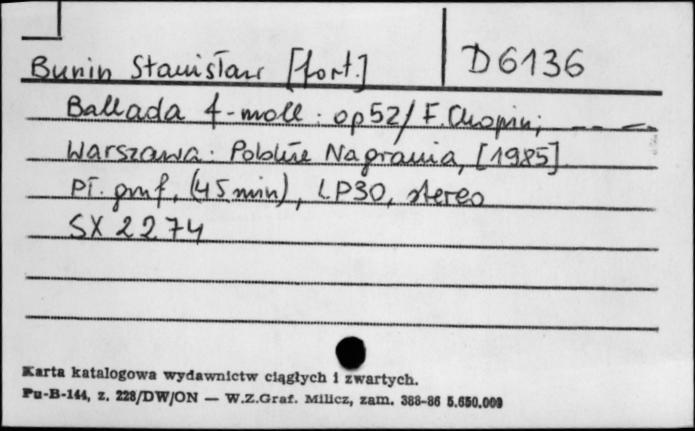 Bunin Stanisław [fort.] D6136
Ballada f-moll : op52/ F. Chopin;
Warszawa: Polskie Nagrania, [1985]
Pł. gmf, (45 min), LP30, stereo
SX 2274
Karta katalogowa wydawnictw ciągłych i zwartych.
Pu-B-144, z. 228/DW/ON — W.Z.Graf. Milicz, zam. 388-86 5.650.009